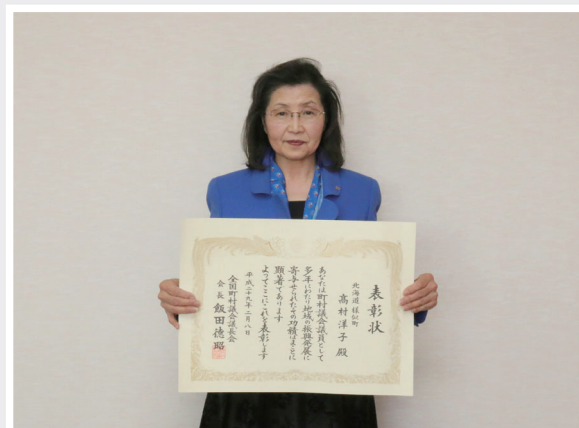 表彰状
北海道 様似町
高村洋子 殿
あなたは町村議会議員として
多年にわたり地域の振興発展に
寄与せられたその功績はまことに
顕著であります
よってここにこれを表彰します
平成二十九年二月八日
全国町村議会議長会
会長 飯田徳昭